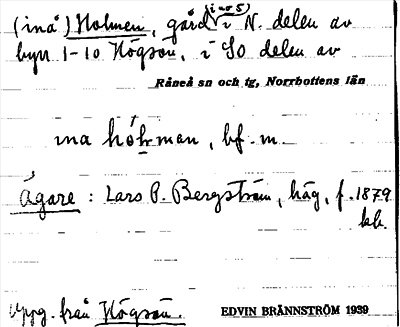 (inå) Holmen, gård (i nr 5) i N. delen av
byn 1-10 Högsön, i SO delen av
Råneå sn och tg, Norrbottens län
ina hóhman, bf. m.
Ägare : Lars P. Bergström, häg, f. 1879
ib.
Uppg. från Högsön.
EDVIN BRÄNNSTRÖM 1939